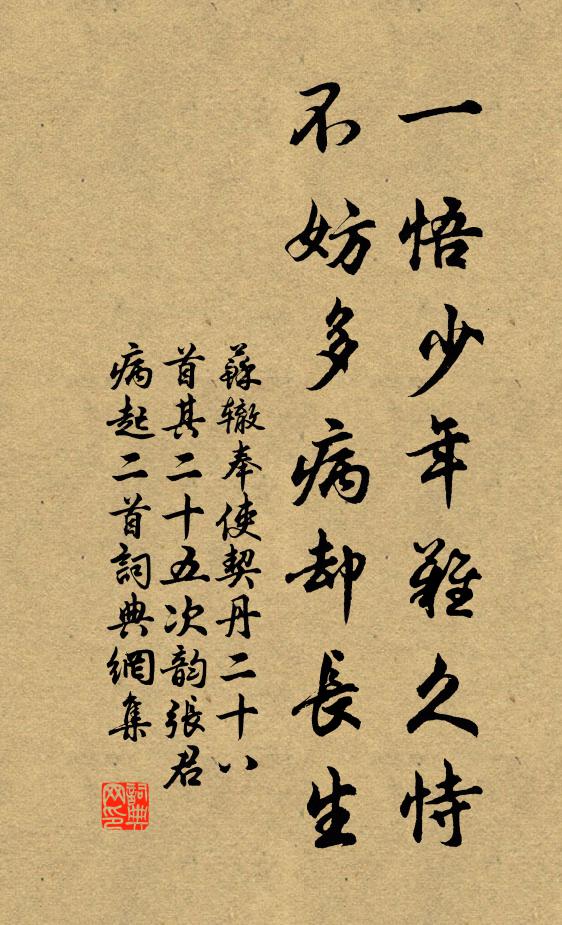 一悟少年難久恃
不妨多病却長生
蘇辙奉使契丹二十八
首其二十五次韵張君
病起二首詞典網集
詞典
网印